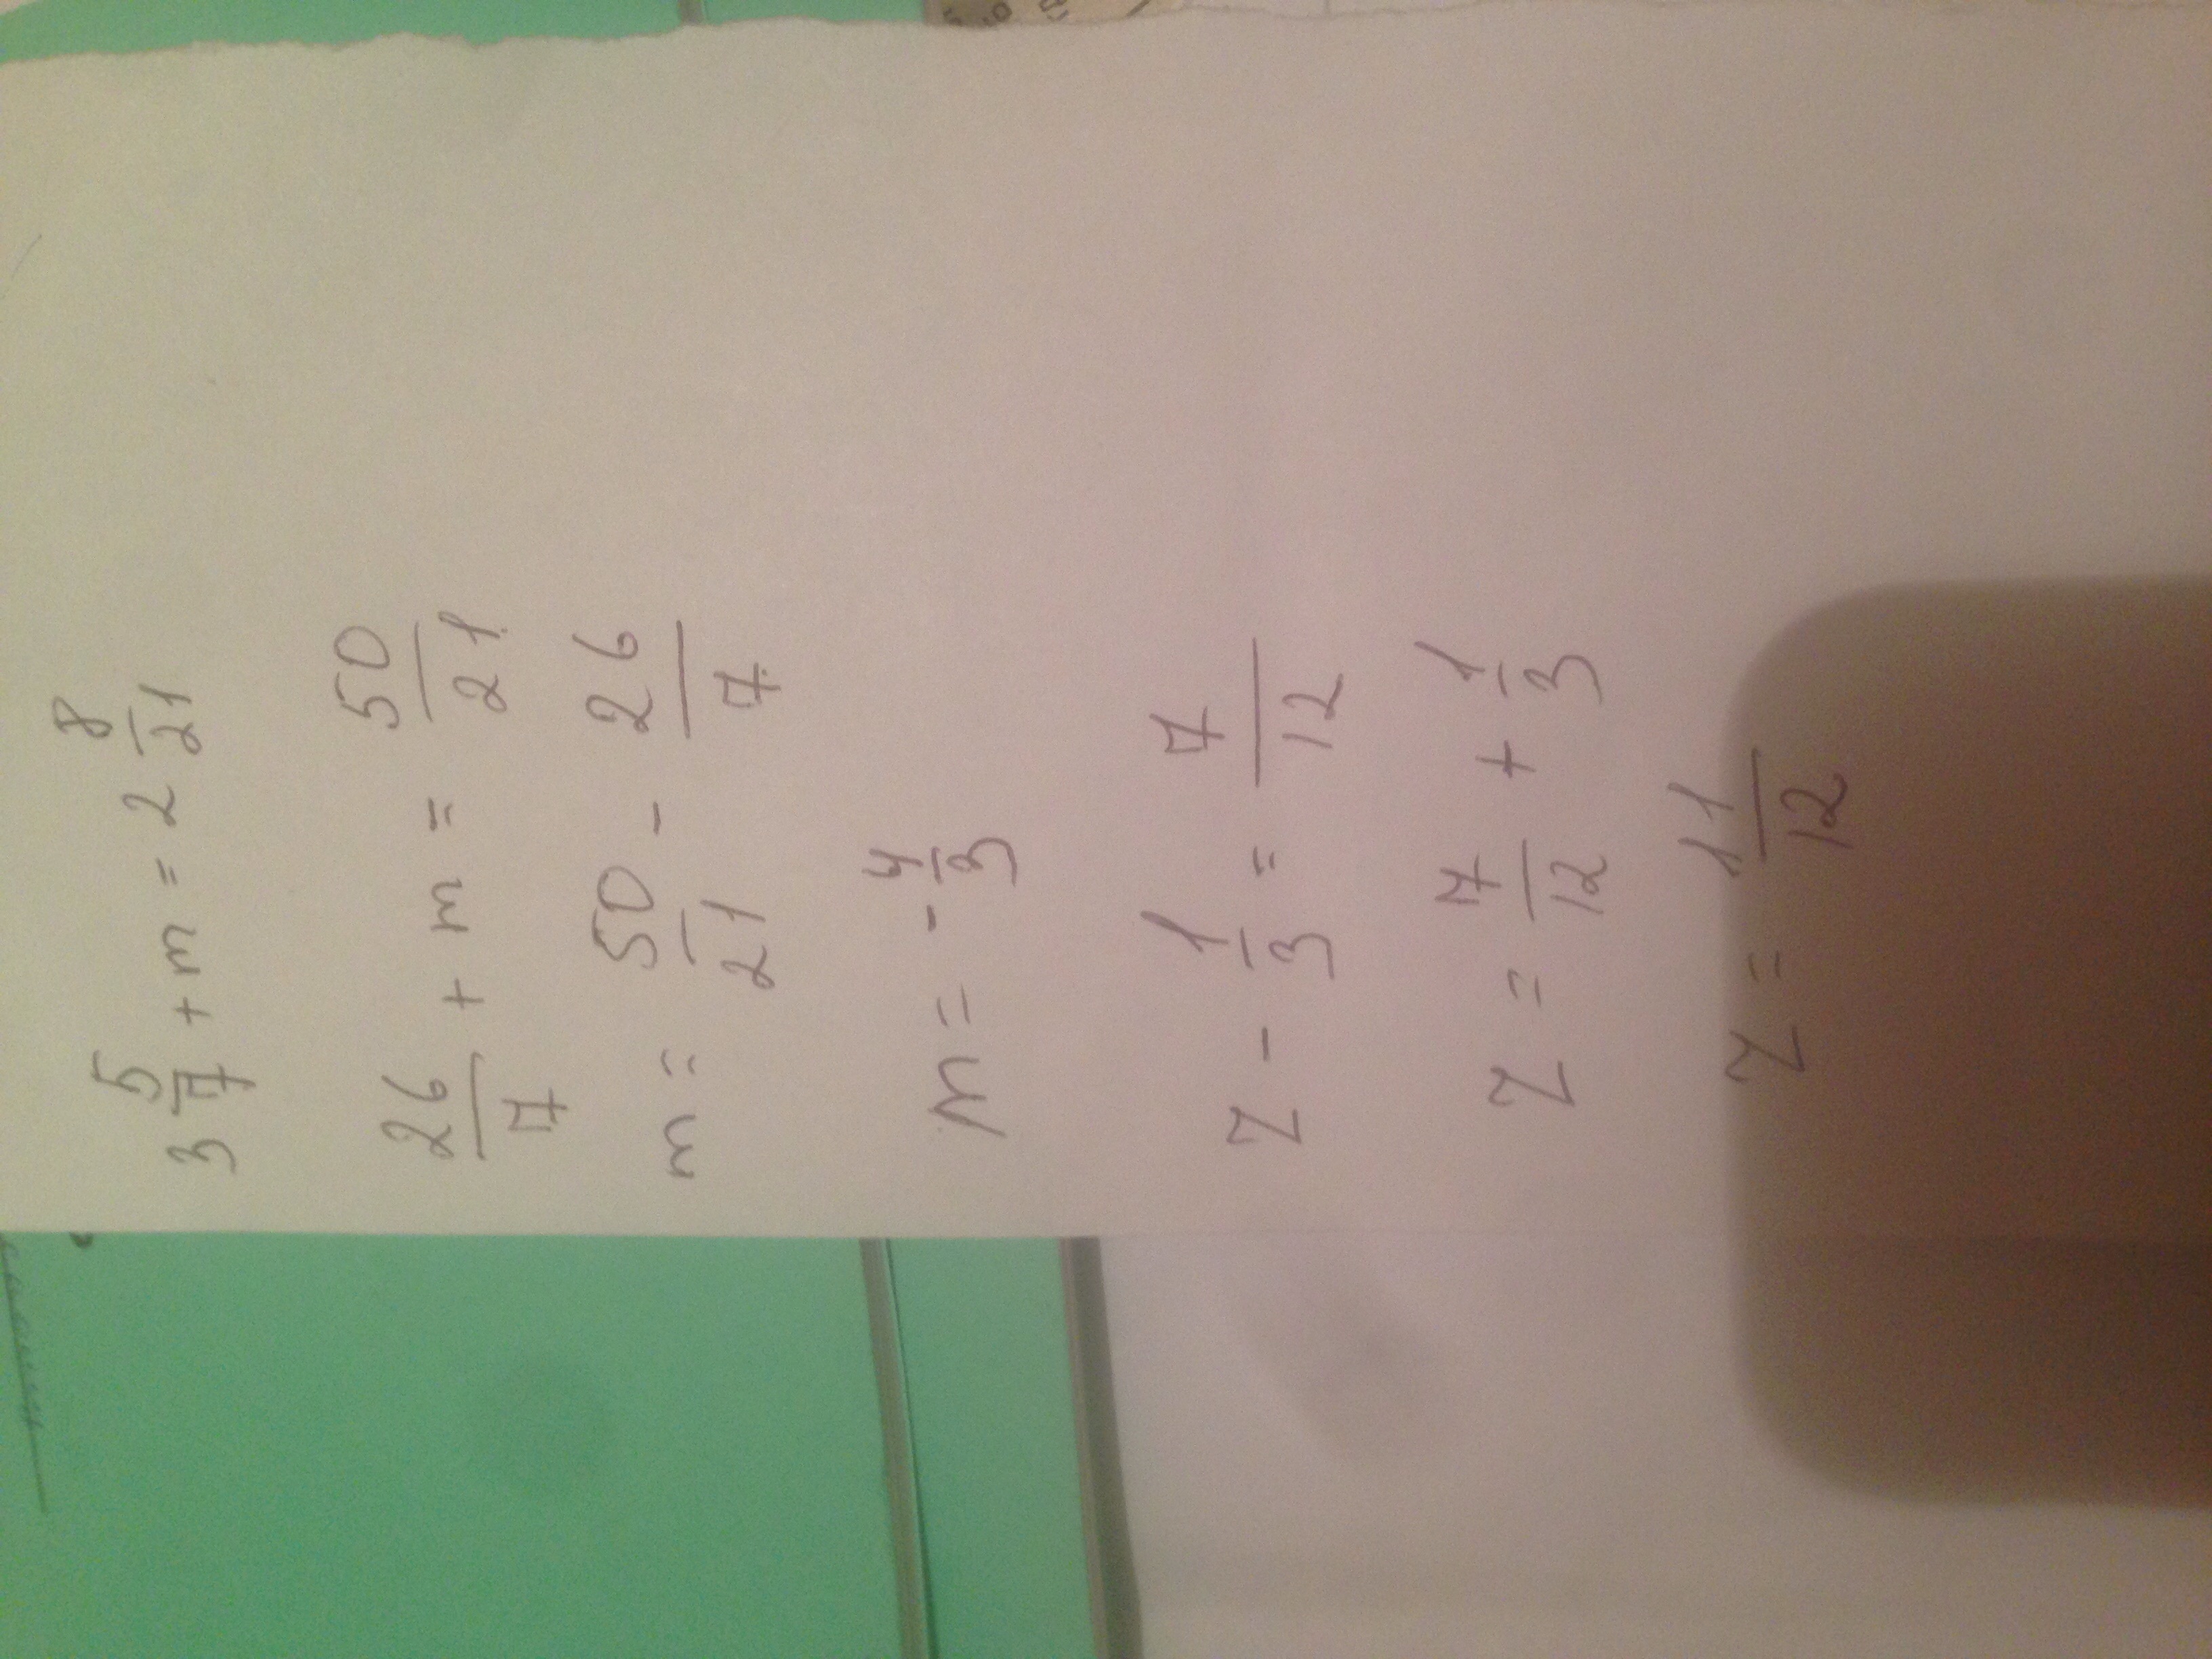 3 5/7 + m = 2 8/21
26/7 + m = 50/21
m = 50/21 - 26/7
m = - 4/3
z - 1/3 = 7/12
z = 7/12 + 1/3
z = 11/12